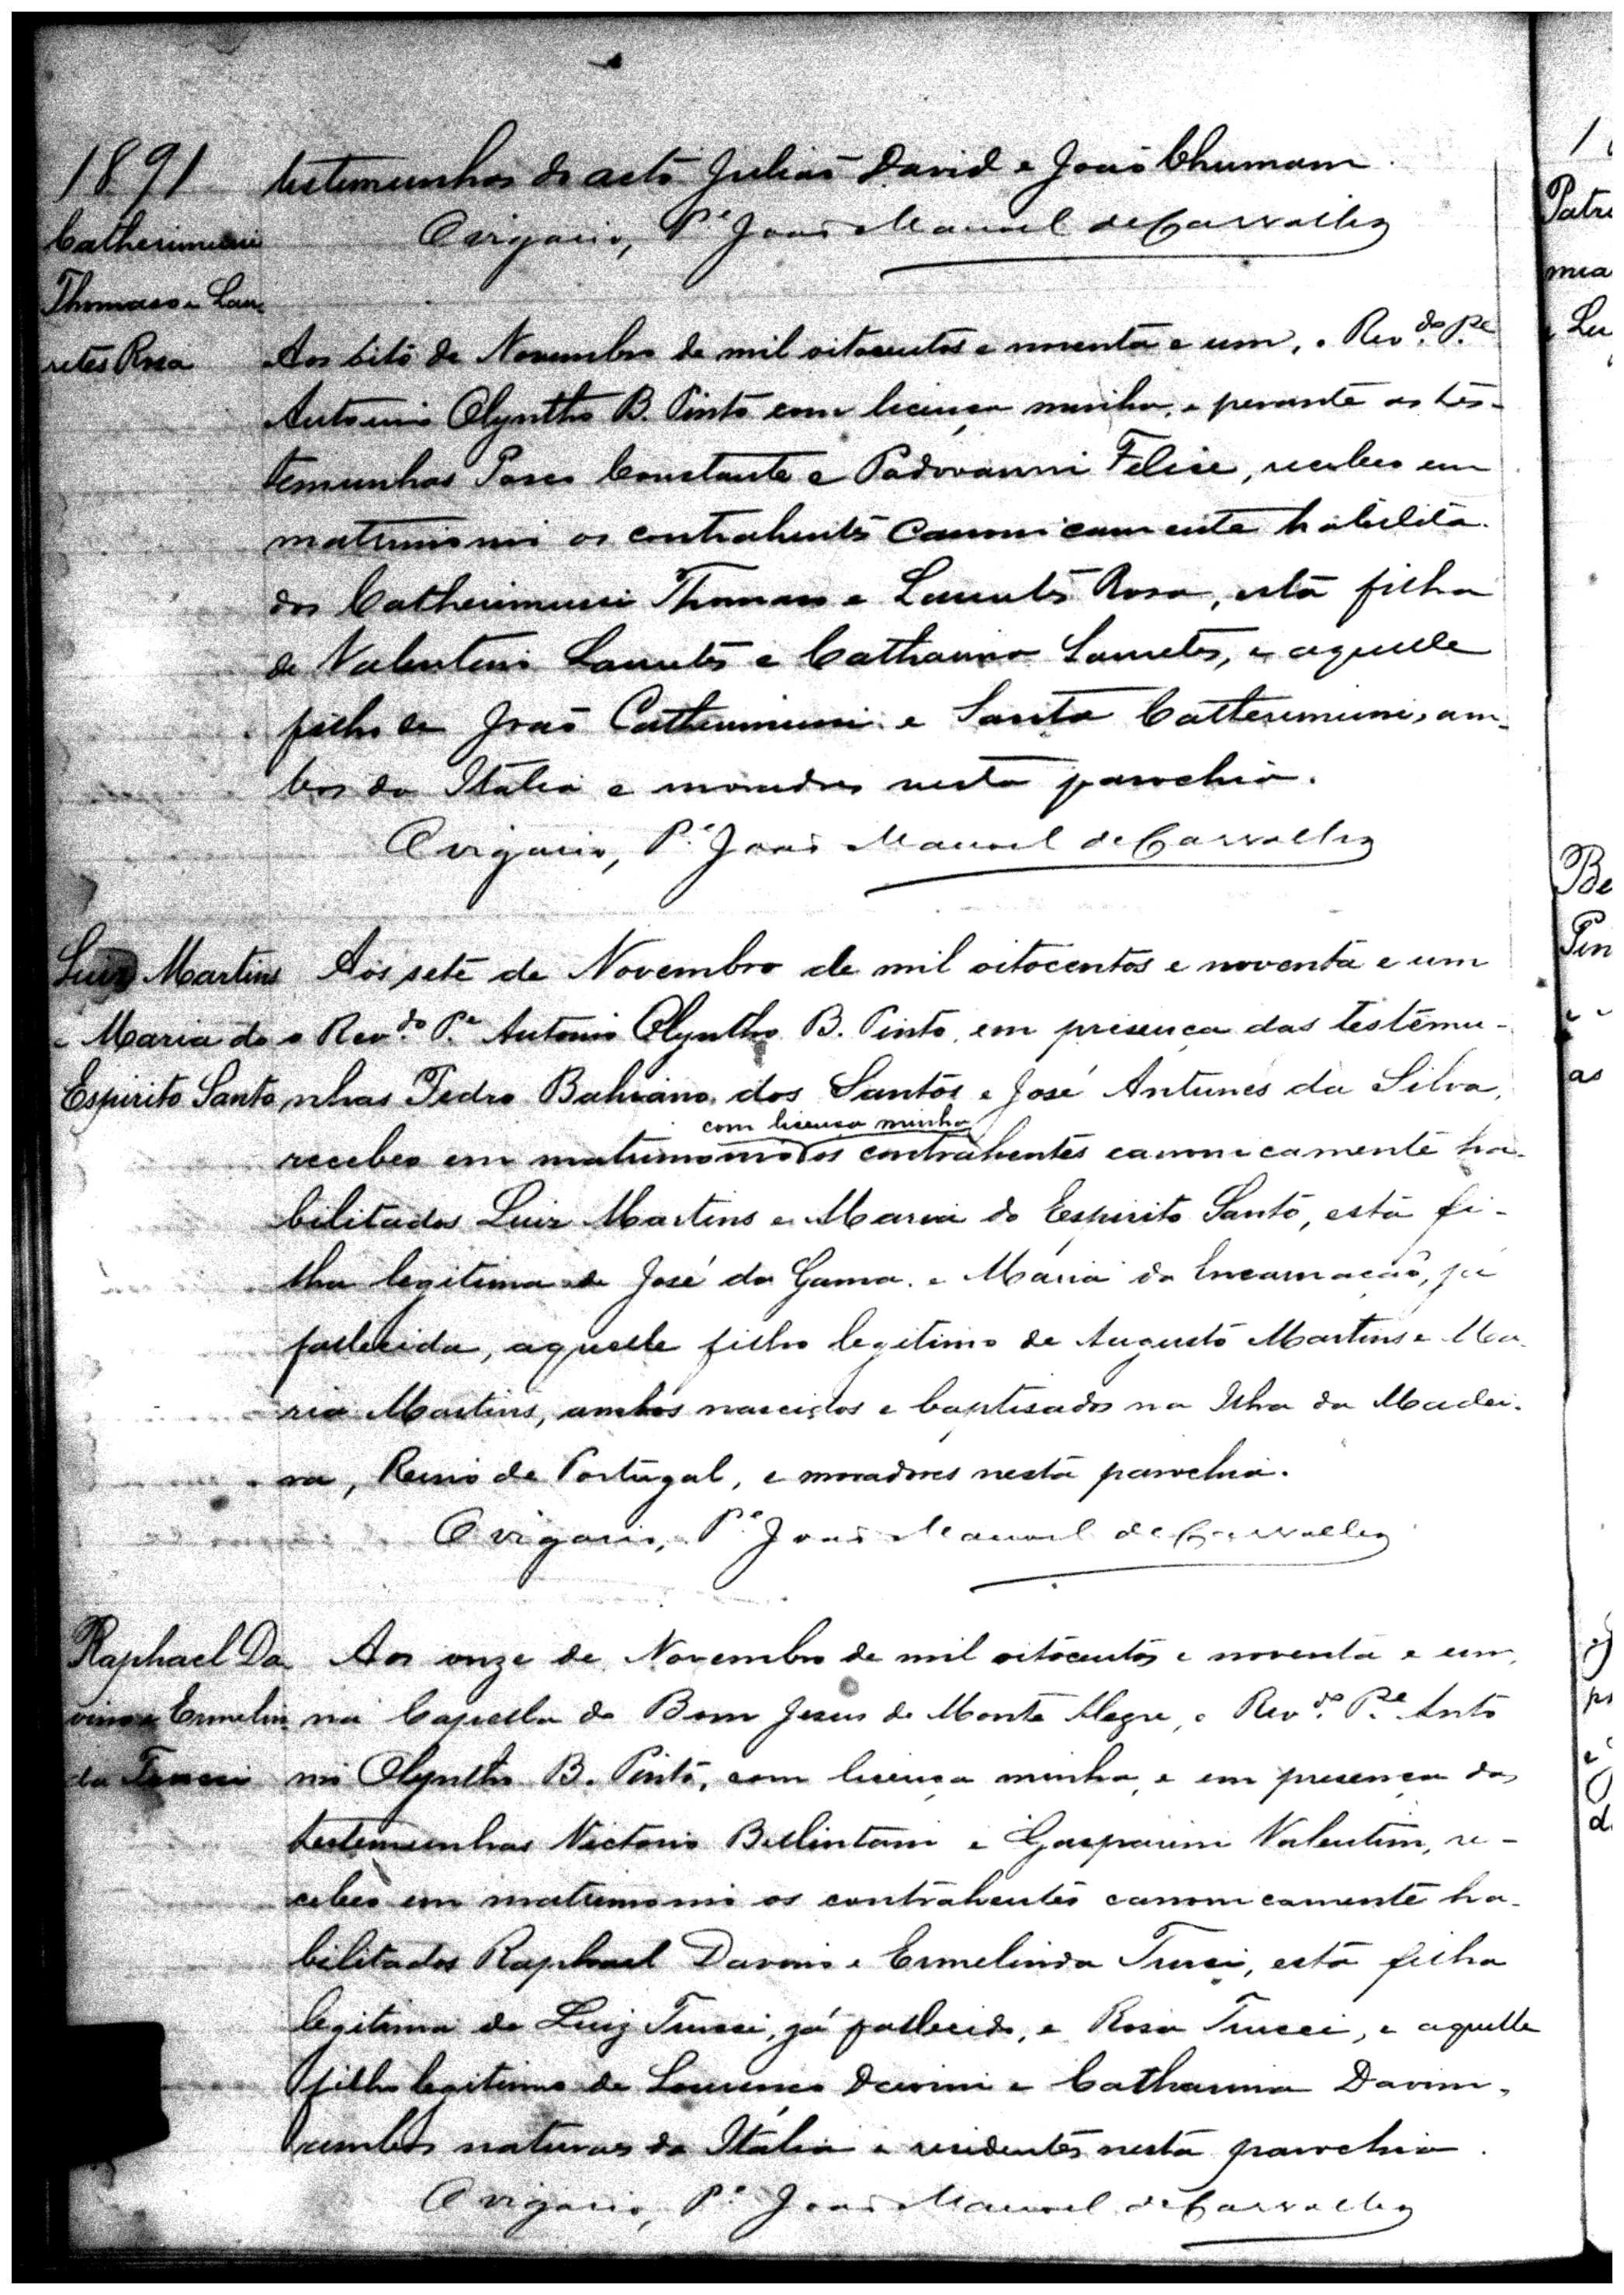 1891
testemunhas do acto Julião David e João Chumam.
O vigario, P.e João Manoel de Carvalho
Catherimuni
Thomaso e Lau-
retes Rosa
Aos oito de Novembro de mil oitocentos e noventa e um, o Rev.do P.e
Antonio Olyntho B. Pinto com licença minha, e perante as tes-
temunhas Constante e Padovanni Felice, recebeo em
matrimonio os contrahentes canonicamente habilita-
dos Catherimuni Thomaso e Lauretes Rosa, esta filha
de Valentino Lauretes e Catharina Lauretes, e aquelle
filho de João Catherimuni e Santa Catherimuni, am-
bos da Italia e moradores nesta parochia.
O vigario, P.e João Manoel de Carvalho
Luiz Martins
e Maria do
Espirito Santo
Aos sete de Novembro de mil oitocentos e noventa e um
o Rev.do P.e Antonio Olyntho B. Pinto, em presença das testemu-
nhas Pedro Bahiano dos Santos e José Antunes da Silva,
com licença minha
recebeo em matrimonio os contrahentes canonicamente ha-
bilitados Luiz Martins e Maria do Espirito Santo, esta fi-
lha legitima de José da Gama e Maria da Encarnação, já
fallecida, aquelle filho legitimo de Augusto Martins e Ma-
ria Martins, ambos nascidos e baptisados na Ilha da Madei-
ra, Reino de Portugal, e moradores nesta parochia.
O vigario, P.e João Manoel de Carvalho
Raphael Da-
vino e Ermelin-
da Trucci
Aos onze de Novembro de mil oitocentos e noventa e um,
na Capella do Bom Jesus de Monte Alegre, o Rev.do P.e Anto
nio Olyntho B. Pinto, com licença minha, e em presença das
testemunhas Victorio Bellintani e Gasparini Valentim, re-
cebeo em matrimonio os contrahentes canonicamente ha-
bilitados Raphael Davino e Ermelinda Trucci, esta filha
legitima de Luiz Trucci, já fallecido, e Rosa Trucci, e aquelle
filho legitimo de Lourenço Davini e Catharina Davini,
ambos naturaes da Italia e residentes nesta parochia.
O vigario, P.e João Manoel de Carvalho